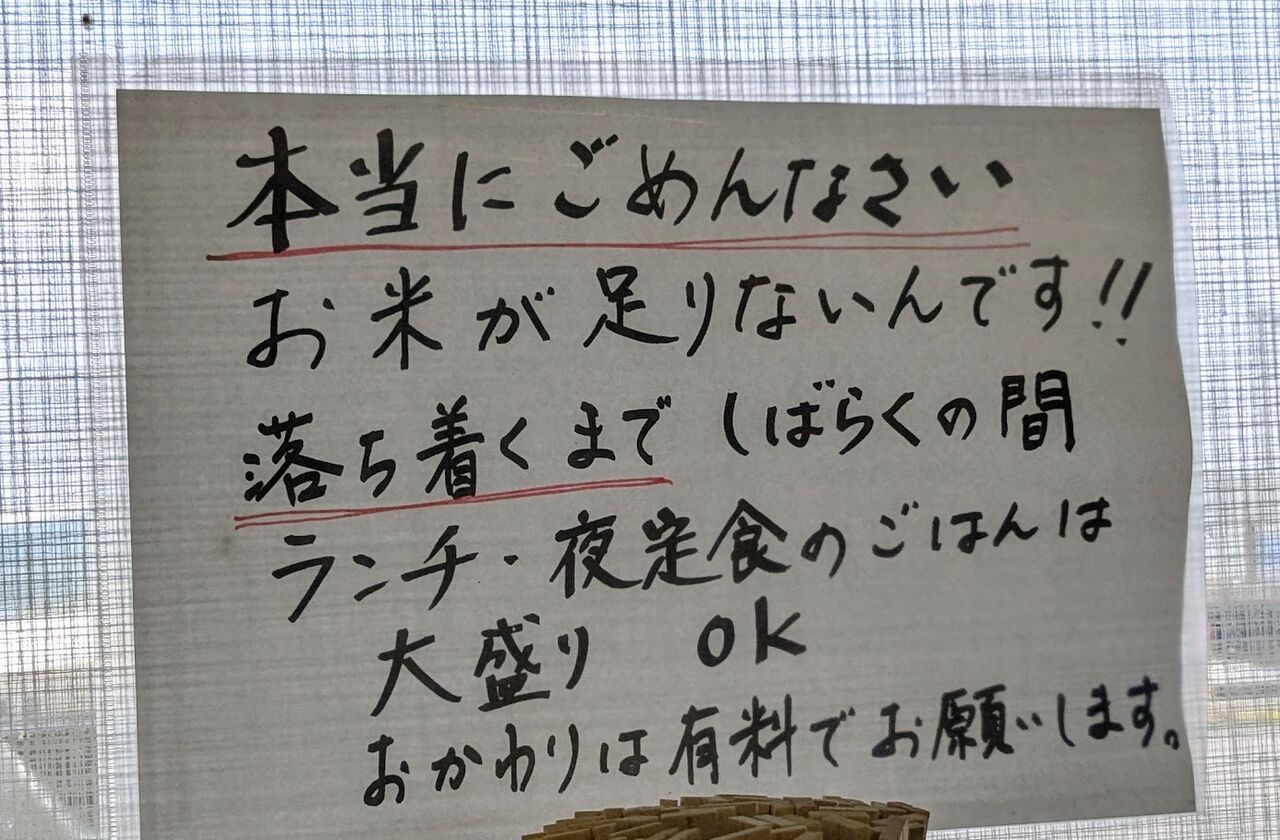 本当にごめんなさい
お米が足りないんです!!
落ち着くまで しばらくの間
ランチ・夜定食のごはんは
大盛り OK
おかわりは有料でお願いします。